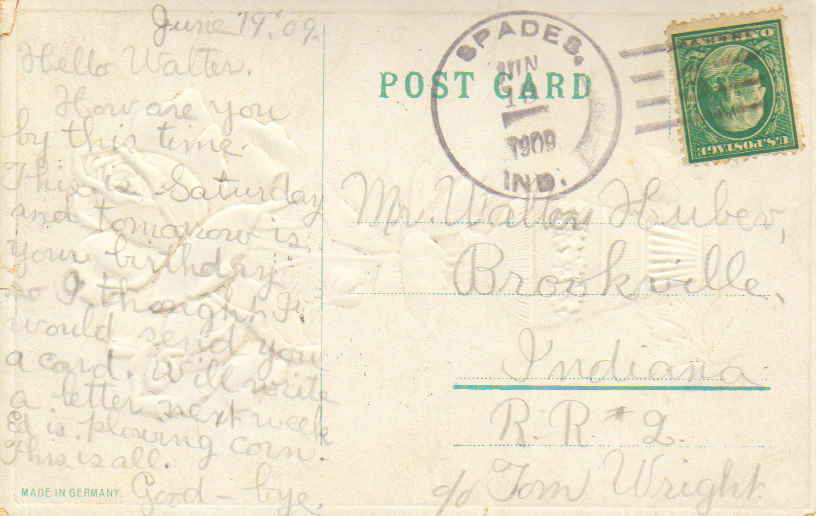 June 19, '09.
Hello Walter.
How are you
by this time.
This is Saturday
and tomorrow is
your birthday
so I thought I
would send you
a card. Will write
a letter next week
Ed is plowing corn.
This is all.
Good-bye.
MADE IN GERMANY.
POST CARD
SPADES,
JUN
19
1909
IND.
U.S. POSTAGE
ONE CENT
Mr. Walter Huber,
Brookville,
Indiana
R.R. #2.
c/o Tom Wright.